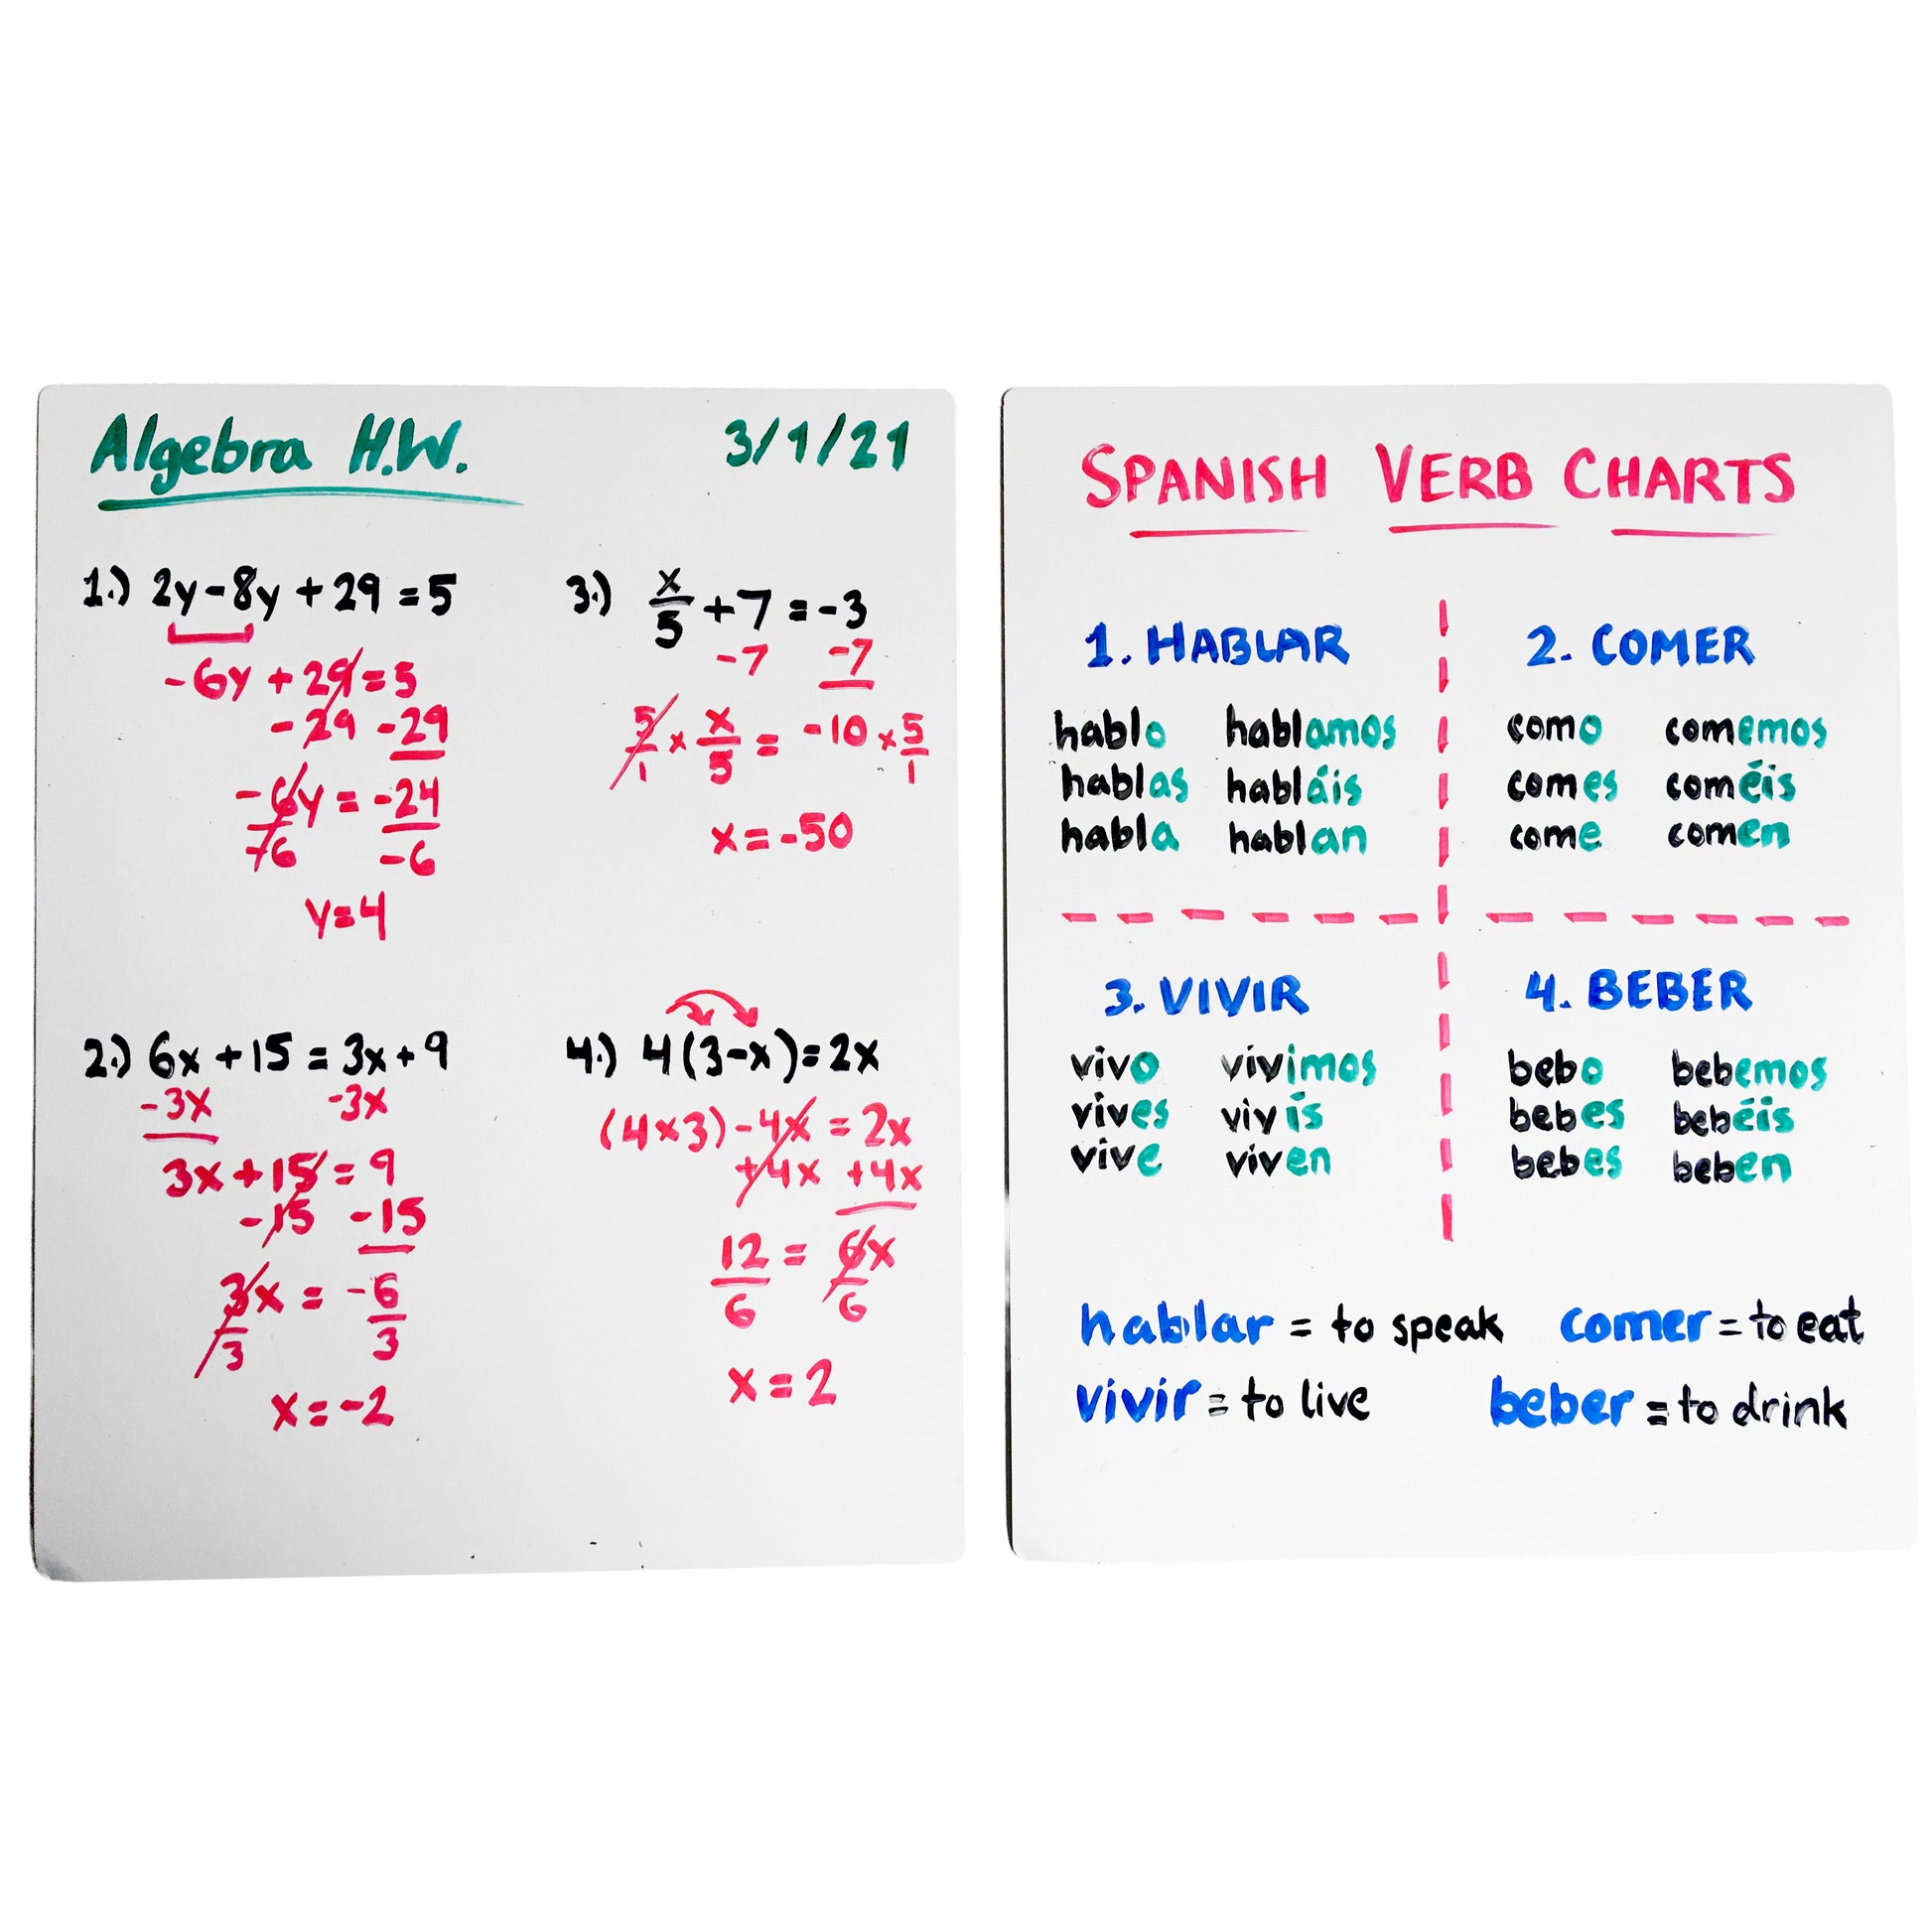 Algebra H.W. 3/1/21
1.) 2y-8y+29=5
-6y+29=5
-29 -29
-6y = -24
-6 -6
y=4
2.) 6x+15=3x+9
-3x -3x
3x+15=9
-15 -15
3x = -6
3 3
x=-2
3.) x/5+7=-3
-7 -7
5/1 × x/5 = -10 × 5/1
x=-50
4.) 4(3-x)=2x
(4x3)-4x=2x
+4x +4x
12 = 6x
6 6
x=2
SPANISH VERB CHARTS
1. HABLAR
hablo hablamos
hablas habláis
habla hablan
2. COMER
como comemos
comes coméis
come comen
3. VIVIR
vivo vivimos
vives vivís
vive viven
4. BEBER
bebo bebemos
bebes bebéis
bebes beben
hablar = to speak comer = to eat
vivir = to live beber = to drink